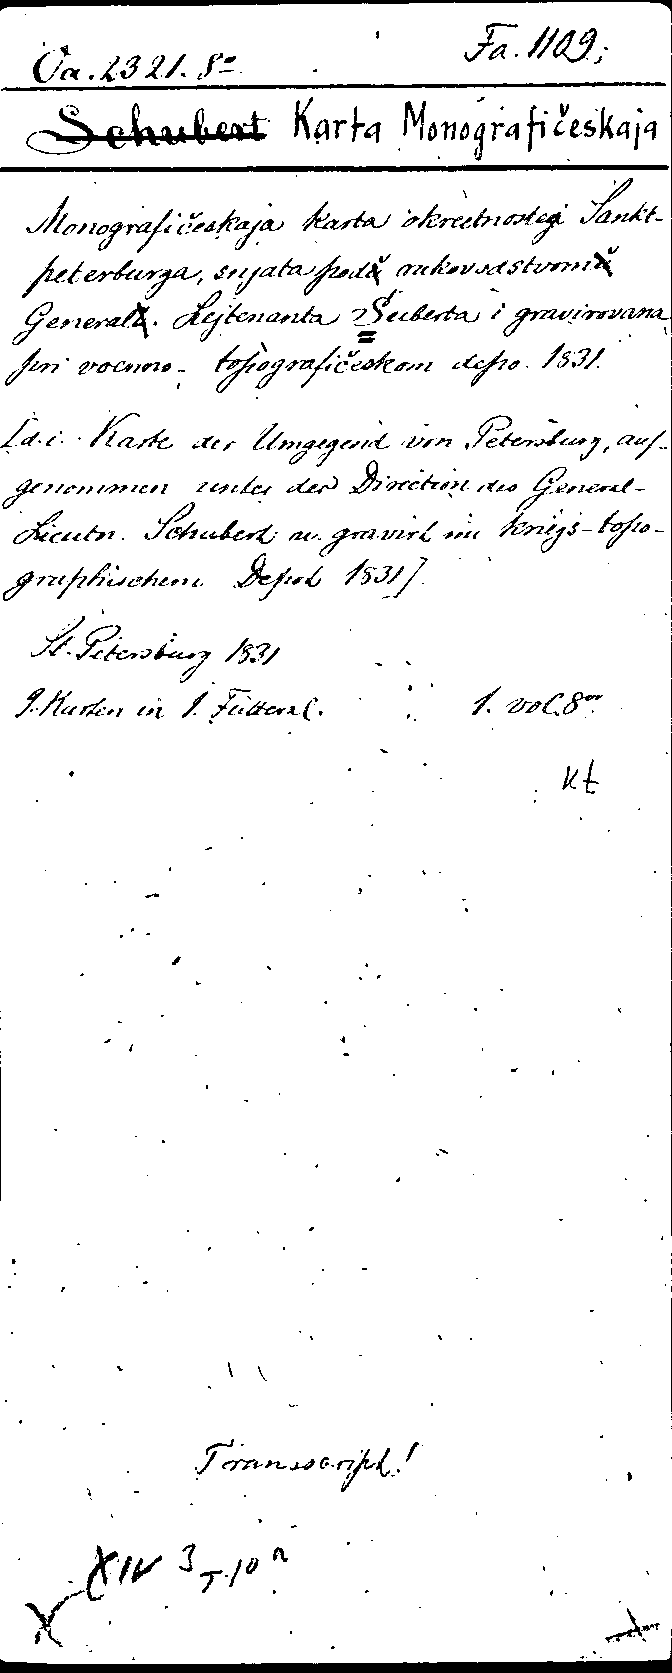 Oa. 2321. 8º
Fa. 1109;
Schubert Karta Monografičeskaja
Monografičeskaja karta okrestnostej Sankt-
peterburga, snjata pod rukovodstvom
General. Lejtenanta Šuberta i gravirovana
pri voenno-topografičeskom depo. 1831.
[d. i. Karte der Umgegend von Petersburg, auf-
genommen unter der Direction des General-
Lieutn. Schubert u. gravirt im kriegs-topo-
graphischem Depot 1831].
St. Petersburg 1831
9. Karten in 1. Futteral. 1. vol. 8º
Kt
Transscript!
XIV 3